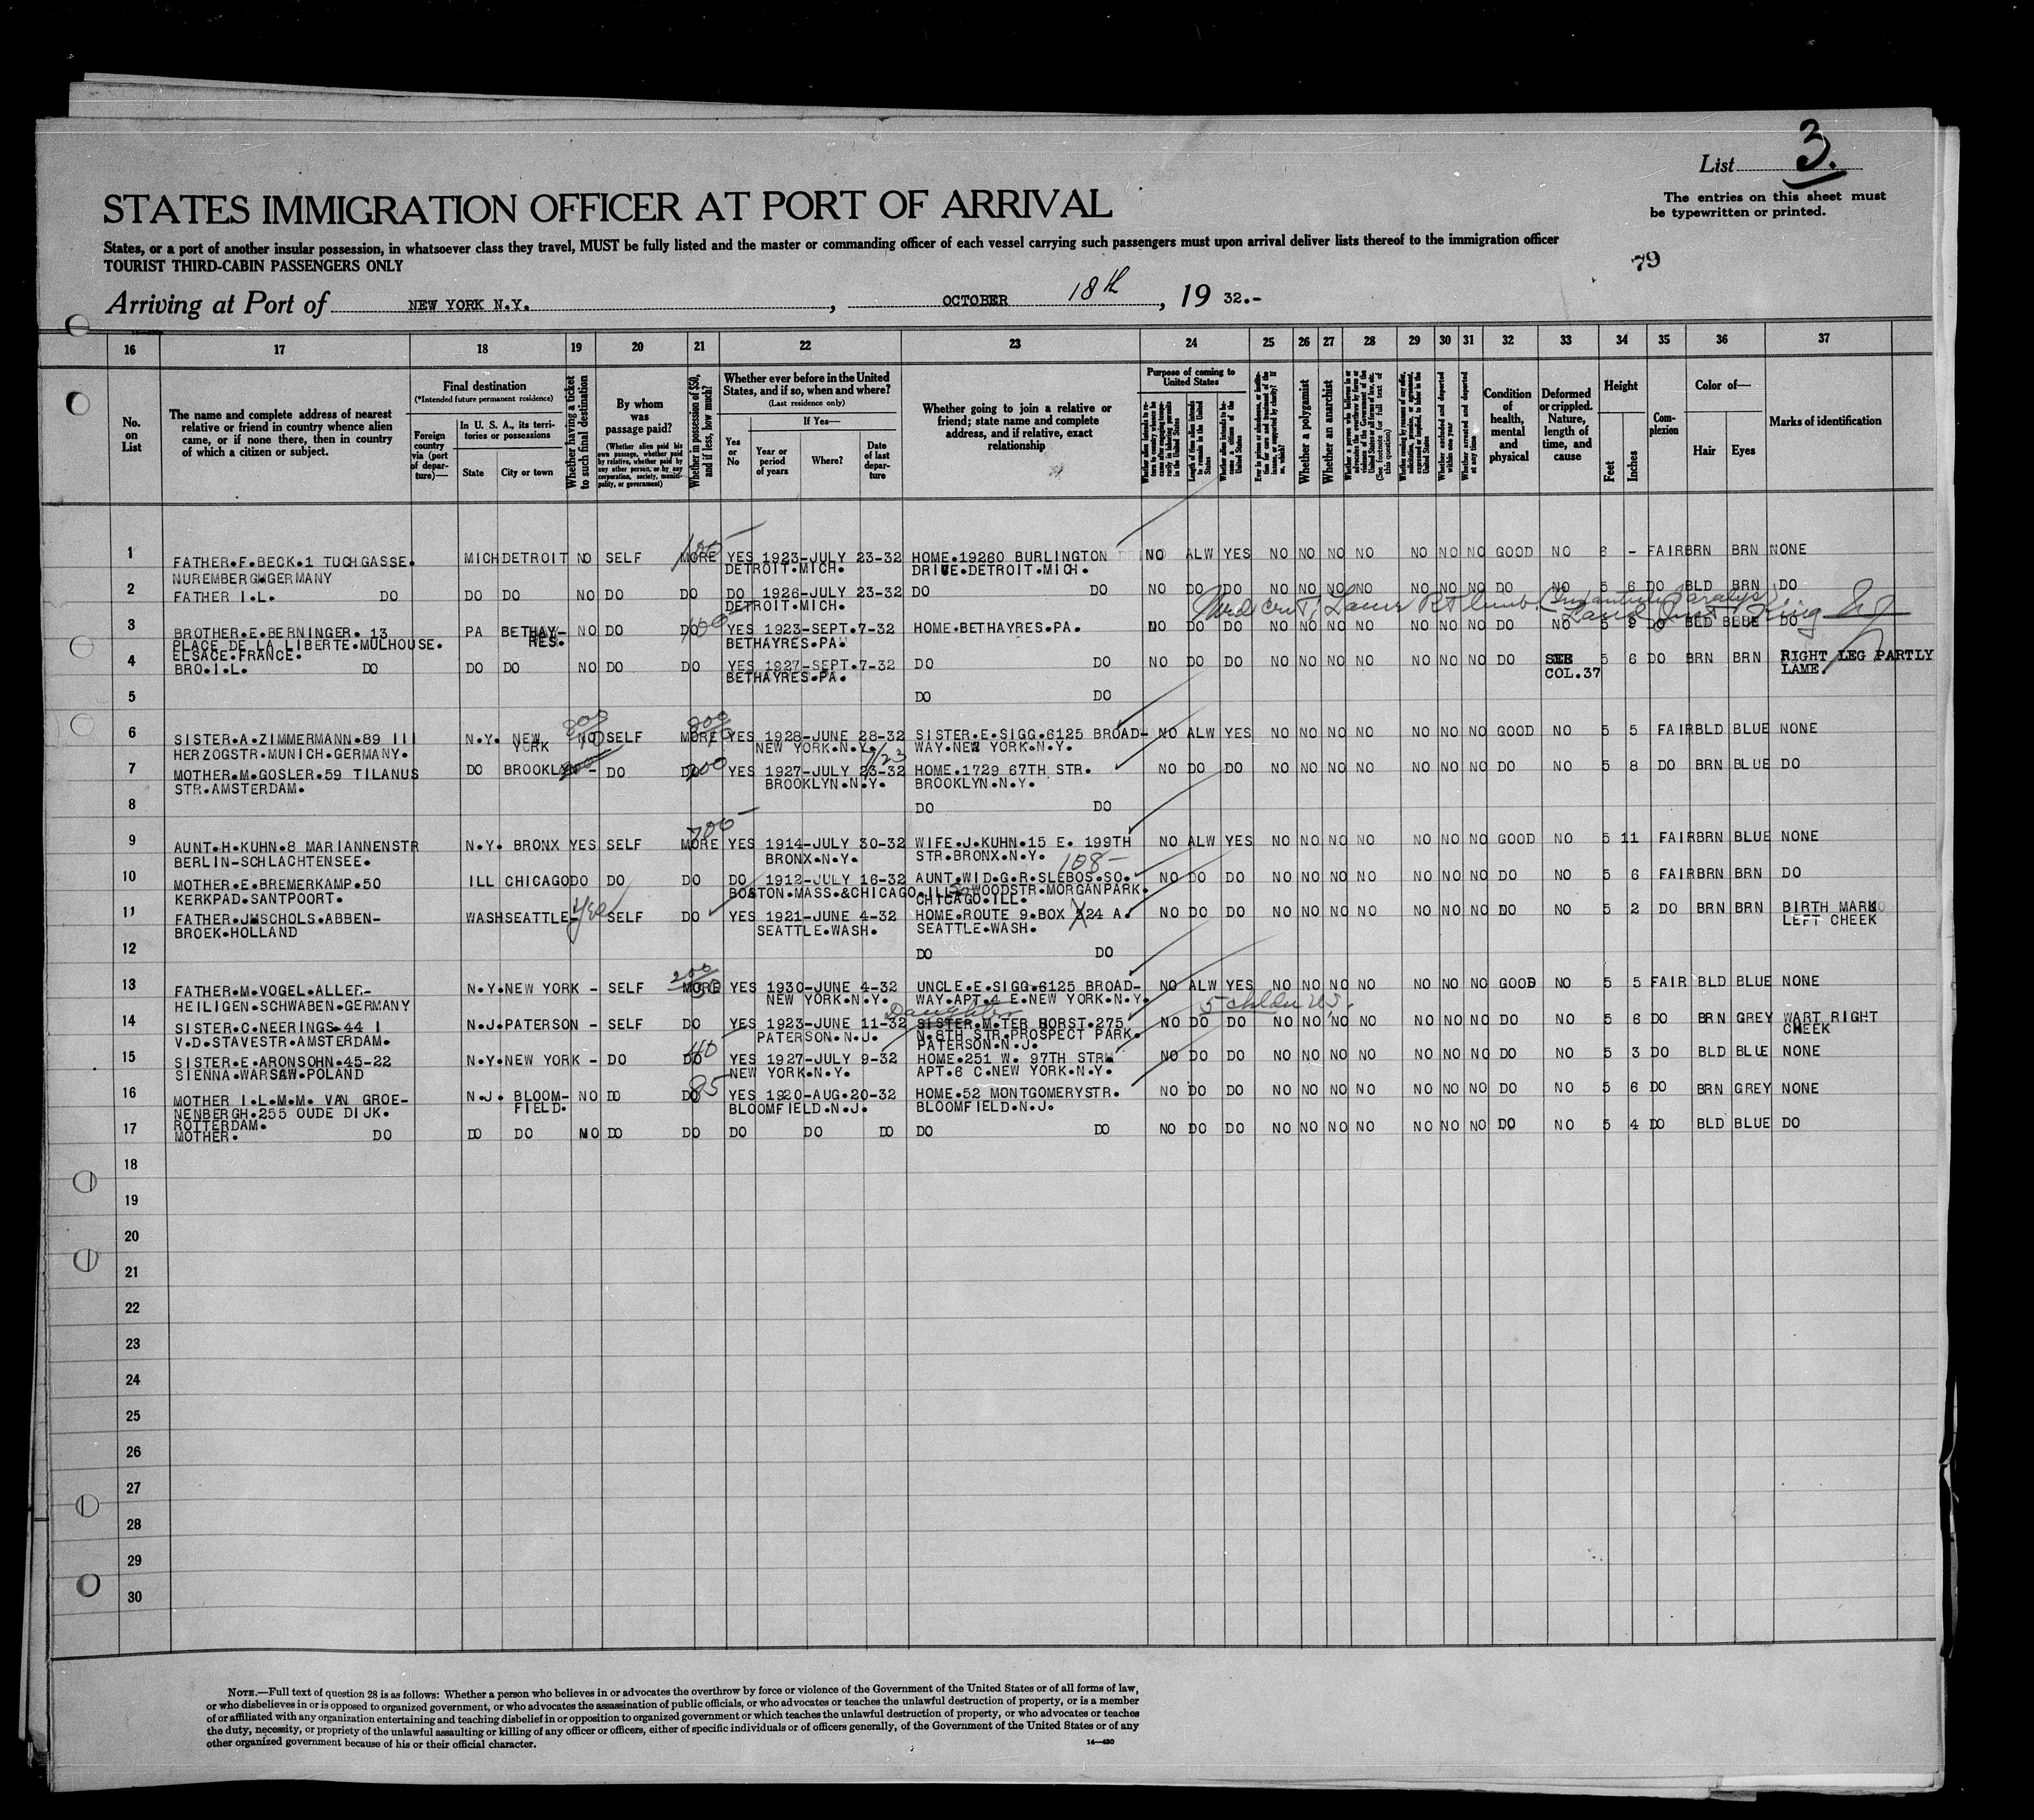 List 3.
The entries on this sheet must
be typewritten or printed.
STATES IMMIGRATION OFFICER AT PORT OF ARRIVAL
States, or a port of another insular possession, in whatsoever class they travel, MUST be fully listed and the master or commanding officer of each vessel carrying such passengers must upon arrival deliver lists thereof to the immigration officer
TOURIST THIRD-CABIN PASSENGERS ONLY
79
Arriving at Port of NEW YORK N.Y. , OCTOBER 18th , 19 32.-
16 17 18 19 20 21 22 23 24 25 26 27 28 29 30 31 32 33 34 35 36 37
No. on List
The name and complete address of nearest relative or friend in country whence alien came, or if none there, then in country of which a citizen or subject.
Final destination
(*Intended future permanent residence)
Foreign country via (port of departure)—
In U. S. A., its territories or possessions
State
City or town
Whether having a ticket to such final destination
By whom was passage paid?
(Whether alien paid his own passage, whether paid by relative, whether paid by any other person, or by any corporation, society, municipality, or government)
Whether in possession of $50, and if less, how much?
Whether ever before in the United States, and if so, when and where?
(Last residence only)
Yes or No
If Yes—
Year or period of years
Where?
Date of last departure
Whether going to join a relative or friend; state name and complete address, and if relative, exact relationship
Purpose of coming to United States
Length of time alien intends to remain in the United States
Whether alien intends to become a citizen of the United States
Whether a polygamist
Whether an anarchist
Whether excluded and deported within one year
Whether arrested and deported at any time
Condition of health, mental and physical
Deformed or crippled. Nature, length of time, and cause
Height
Feet
Inches
Complexion
Color of—
Hair
Eyes
Marks of identification
1 FATHER.F.BECK.1 TUCHGASSE. MICH DETROIT NO SELF MORE YES 1923-JULY 23-32 HOME.19260 BURLINGTON NO ALW YES NO NO NO NO NO NO NO GOOD NO 6 - FAIR BRN BRN NONE
NUREMBERG.GERMANY DETROIT.MICH. DRIVE.DETROIT.MICH.
2 FATHER I.L. DO DO DO NO DO DO DO 1926-JULY 23-32 DO DO NO DO DO NO NO NO NO NO NO NO DO NO 5 6 DO BLD BRN DO
DETROIT.MICH.
3 BROTHER.E.BERNINGER. 13 PA BETHAY- NO DO DO YES 1923-SEPT.7-32 HOME.BETHAYRES.PA. NO DO DO NO NO NO NO NO NO NO DO NO 5 9 DO BLD BLUE DO
PLACE DE LA LIBERTE.MULHOUSE. RES. BETHAYRES.PA.
ELSACE.FRANCE.
4 BRO.I.L. DO DO DO NO DO DO YES 1927-SEPT.7-32 DO DO NO DO DO NO NO NO NO NO NO NO DO SEE 5 6 DO BRN BRN RIGHT LEG PARTLY
BETHAYRES.PA. COL.37 LAME.
5 DO DO
6 SISTER.A.ZIMMERMANN.89 III N.Y. NEW NO SELF MORE YES 1928-JUNE 28-32 SISTER.E.SIGG.6125 BROAD- NO ALW YES NO NO NO NO NO NO NO GOOD NO 5 5 FAIR BLD BLUE NONE
HERZOGSTR.MUNICH.GERMANY. YORK NEW YORK.N.Y. WAY.NEW YORK.N.Y.
7/23
7 MOTHER.M.GOSLER.59 TILANUS DO BROOKLYN - DO DO 200 YES 1927-JULY 23-32 HOME.1729 67TH STR. NO DO DO NO NO NO NO NO NO NO DO NO 5 8 DO BRN BLUE DO
STR.AMSTERDAM. BROOKLYN.N.Y. BROOKLYN.N.Y.
8 DO DO
700-
9 AUNT.H.KUHN.8 MARIANNENSTR N.Y. BRONX YES SELF MORE YES 1914-JULY 30-32 WIFE.J.KUHN.15 E. 199TH NO ALW YES NO NO NO NO NO NO NO GOOD NO 5 11 FAIR BRN BLUE NONE
BERLIN-SCHLACHTENSEE. BRONX.N.Y. STR.BRONX.N.Y.
108-
10 MOTHER.E.BREMERKAMP.50 ILL CHICAGO DO DO DO DO 1912-JULY 16-32 AUNT.WID.G.R.SLEBOS.SO. NO DO DO NO NO NO NO NO NO NO DO NO 5 6 FAIR BRN BRN DO
KERKPAD.SANTPOORT. BOSTON.MASS.&CHICAGO.ILL. WOODSTR.MORGANPARK.
CHICAGO.ILL.
11 FATHER.J.SCHOLS.ABBEN- WASH SEATTLE- Yes SELF DO YES 1921-JUNE 4-32 HOME.ROUTE 9.BOX 324 A. NO DO DO NO NO NO NO NO NO NO DO NO 5 2 DO BRN BRN BIRTH MARK
BROEK.HOLLAND SEATTLE.WASH. SEATTLE.WASH. LEFT CHEEK
12 DO DO
13 FATHER.M.VOGEL.ALLER- N.Y. NEW YORK - SELF MORE YES 1930-JUNE 4-32 UNCLE.E.SIGG.6125 BROAD- NO ALW YES NO NO NO NO NO NO NO GOOD NO 5 5 FAIR BLD BLUE NONE
HEILIGEN.SCHWABEN.GERMANY NEW YORK.N.Y. WAY.APT.4 E.NEW YORK.N.Y.
Daughters 5 childn U.S.
14 SISTER.C.NEERINGS.44 I N.J. PATERSON - SELF DO YES 1923-JUNE 11-32 SISTER.M.TER HORST.275 NO DO DO NO NO NO NO NO NO NO DO NO 5 6 DO BRN GREY WART RIGHT
V.D.STAVESTR.AMSTERDAM. PATERSON.N.J. N.8TH STR.PROSPECT PARK. CHEEK
PATERSON.N.J.
15 SISTER.E.ARONSOHN.45-22 N.Y. NEW YORK - DO DO YES 1927-JULY 9-32 HOME.251 W. 97TH STR. NO DO DO NO NO NO NO NO NO NO DO NO 5 3 DO BLD BLUE NONE
SIENNA.WARSAW.POLAND NEW YORK.N.Y. APT.6 C.NEW YORK.N.Y.
16 MOTHER I.L.M.M. VAN GROE- N.J. BLOOM- NO DO DO 85 YES 1920-AUG.20-32 HOME.52 MONTGOMERYSTR. NO DO DO NO NO NO NO NO NO NO DO NO 5 6 DO BRN GREY NONE
NENBERGH.255 OUDE DIJK. FIELD. BLOOMFIELD.N.J. BLOOMFIELD.N.J.
ROTTERDAM.
17 MOTHER. DO DO DO NO DO DO DO DO DO DO DO NO DO DO NO NO NO NO NO NO NO DO NO 5 4 DO BLD BLUE DO
18
19
20
21
22
23
24
25
26
27
28
29
30
NOTE.—Full text of question 28 is as follows: Whether a person who believes in or advocates the overthrow by force or violence of the Government of the United States or of all forms of law,
or who disbelieves in or is opposed to organized government, or who advocates the assassination of public officials, or who advocates or teaches the unlawful destruction of property, or is a member
of or affiliated with any organization entertaining and teaching disbelief in or opposition to organized government or which teaches the unlawful destruction of property, or who advocates or teaches
the duty, necessity, or propriety of the unlawful assaulting or killing of any officer or officers, either of specific individuals or of officers generally, of the Government of the United States or of any
other organized government because of his or their official character.
14—430